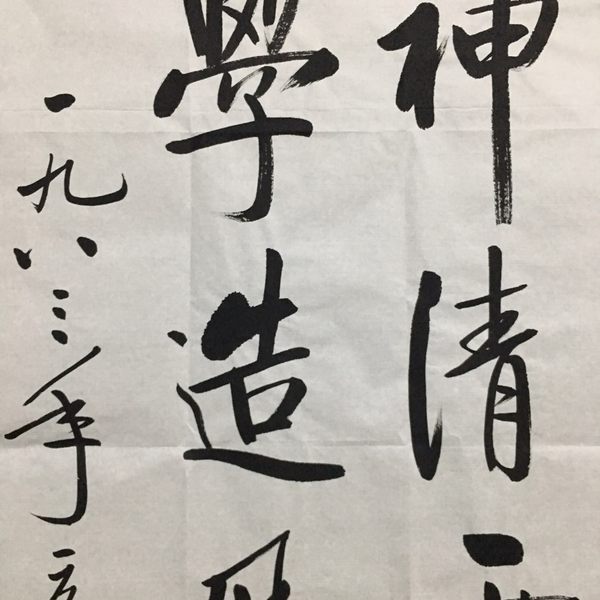 神清
學造
一九八三年